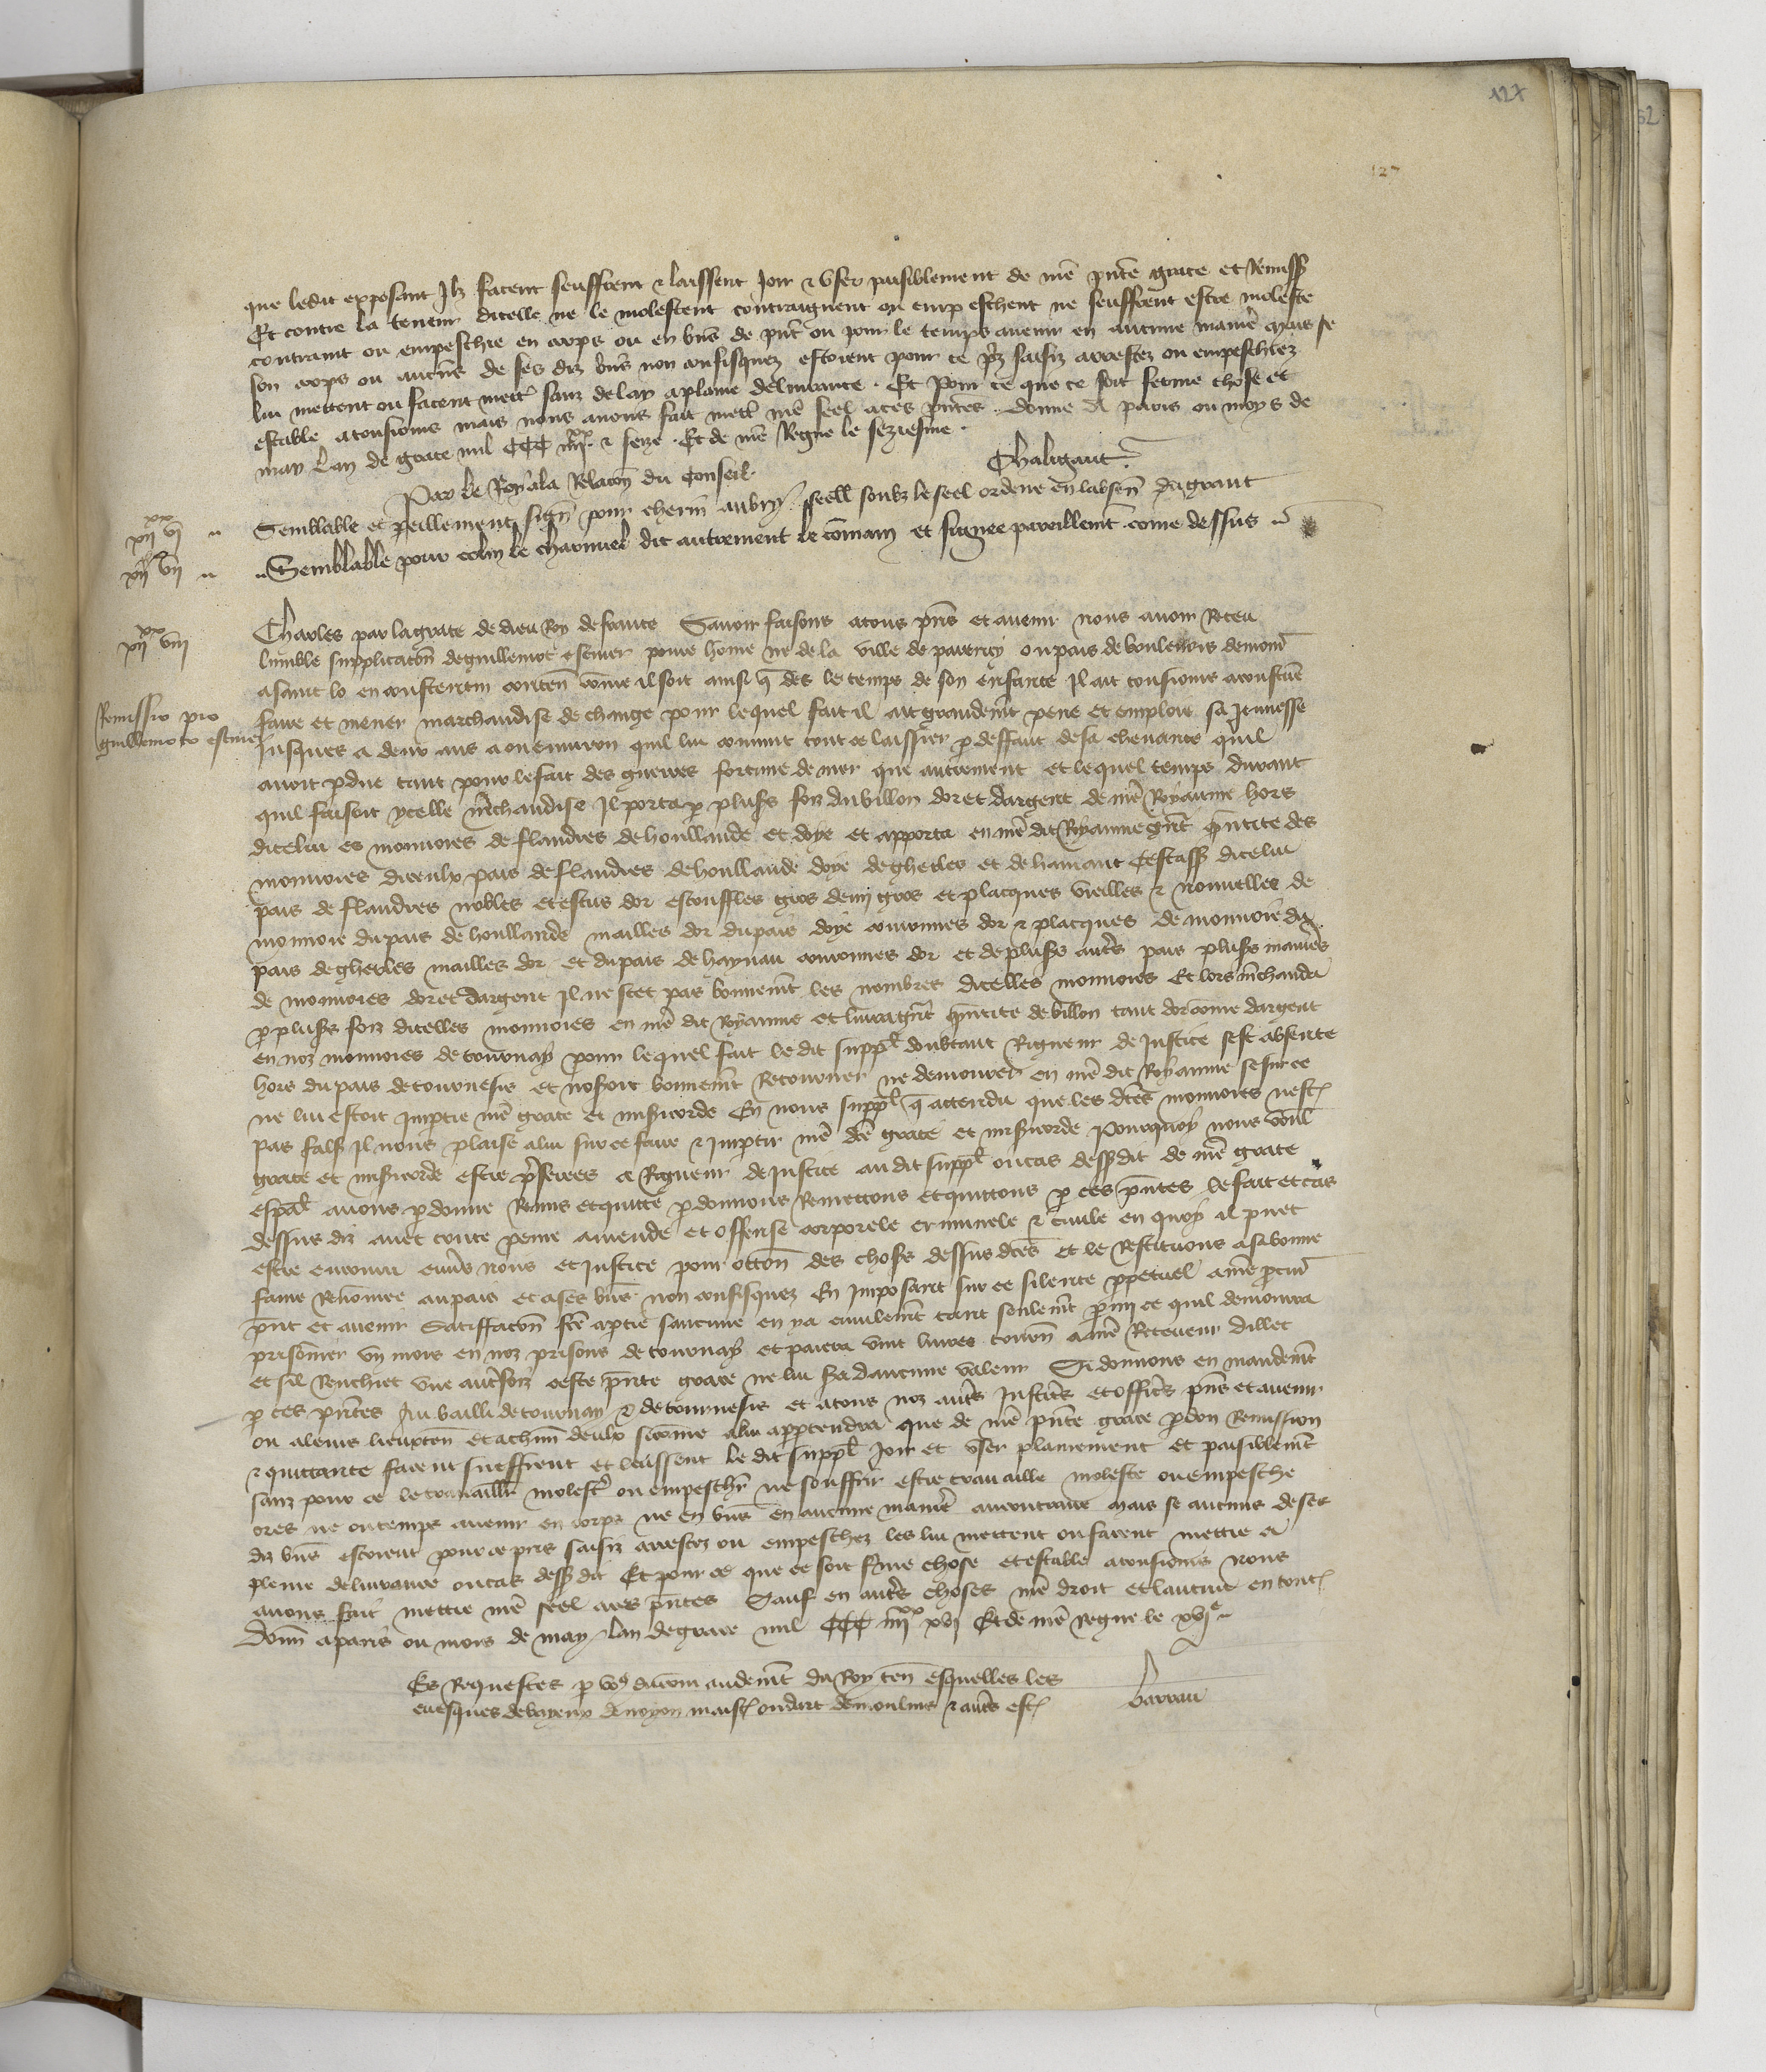 127
127
que ledit exposant Ilz facent seuffrent & laissent Joir & user paisiblement de nrē pn̄te grace et Remiss
Et contre la teneur dicelle ne le molestent contraignent ou empeschent ne seuffrent estre moleste
contraint ou empeschie en corps ou en biens de pn̄t ou pour le temps avenir en aucune manie mais se
son corps ou aucuns de ses diz biens non confisquez estoient pour ce prez saisiz arrestez ou empeschiez
lui mettent ou facent mettre sanz delay a plaine delivrance . Et Pour ce que ce soit ferme chose et
estable a tousiours mais nous avons fait mettre nrē seel a ces pn̄tes . Donne A paris ou moys de
may Lan de grace mil CCC iiijxx & seize . Et de nrē Regne le seziesme .
Par le Roy a la Relacōn du Conseil . Chaligaut
xijxx vj Semblable et pareillement sign pour cherin aubry . seell soubz le seel ordene en labsen du grant
xijxx vij Semblable pour colin le charnuel dit autrement le comain et signee pareillemt come dessus
xijxx viij Charles par la grace de dieu Roy de france Savoir faisons a tous pn̄s et avenir nous avoir Receu
lumble supplicacōn de guillemot esturer povre home ne de la ville de parenty ou pais de boulenois demour
a saint lo en constentin conten come il soit ainsi q̄ des le temps de son enfance Il ait tousiours acoustume
Remissio pro guillemoto esturer
faire et mener marchandise de change pour lequel fait il ait grandemt pene et emploie sa jeunesse
Jusques a deux ans a ou environ quil lui convint tout ce laissier p deffaut de sa chevance quil
avoit pdue tant pour le fait des guerres fortune de mer que autrement et lequel temps durant
quil faisoit ycelle mchandise Il porta p plusrs foiz du billon dor et dargent de nrē Royaume hors
dicelui es monnoies de flandres de houllande et doye et apporta en nrē dit Royaume gnt quntite des
monnoies diceulx pais de flandres de houllande doye de gheeles et de hainaut Cestass dicelui
pais de flandres nobles et escus dor escouffles gros demi gros et placques vieilles & nouvelles de
monnoie du pais de houllande mailles dor du pais doye couronnes dor & placques de monnoie du
pais de gheeles mailles dor et du pais de haynau couronnes dor et de plusrs autrs pais plusrs manies
de monnoies dor et dargent Il ne scet pas bonnemt les nombres dicelles monnoies Et lors mchanda
p plusrs foiz dicelles monnoies en nrē dit Royaume et livra gnt quntite de billon tant dor come dargent
en noz monnoies de tournay pour lequel fait le dit suppl doubtant Rigueur de Justice sest absente
hors du pais de tournesis et nosoit bonnemt Retourner ne demourer en nrē dit Royaume se sur ce
ne lui estoit Imptie nrē grace et misicorde En nous suppl q̄ attendu que les dctes monnoies nest
pas fals Il nous plaise a lui sur ce faire & Imptir nrē dcte grace et misicorde Pourquoy nous voul
grace et misicorde estre pferees a Rigueur de Justice au dit suppl ou cas dessus dit de nrē grace
espal avons pdonne Remis et quitte pdonnons Remettons et quittons p ces pn̄tes le fait et cas
dessus diz avec toute peine amende et offense corporele criminele & civile en quoy il puet
estre encouru envs nous et Justice pour occōn des choses dessus dctes et le Restituons a sa bonne
fame Renōmee au pais et a ses biens non confisquez En Imposant sur ce silence ppetuel a nrē pcur
pn̄t et avenir Satisfacōn fcte a ptie saucune en y a civilemt tant seulemt pmi ce quil demourra
prisonnier un mois en noz prisons de tournay et paiera vint livres tourn a nrē Receveur dillec
et sil Renchiet une autre foiz ceste pn̄te grace ne lui sera daucune valeur Si donnons en mandemt
p ces pn̄tes Au bailli de tournay & de tournesis et a tous noz autrs Justiciers et officiers pn̄s et avenir
ou a leurs lieuxten et a chun deulx si come a lui appartendra que de nrē pn̄te grace pdon Remission
& quittance facent sueffrent et laissent le dit suppl Joir et user plainement et paisiblemt
sanz pour ce le travaillr molestr ou empeschr ne souffrir estre travaille moleste ou empesche
ores ne ou temps avenir en corps ne en biens en aucune manie au contraire mais se aucuns de ses
diz biens estoient pour ce pris saisiz arrestez ou empeschez les lui mettent ou facent mettre a
pleine delivrance ou cas dess dit Et pour ce que ce soit fme chose et estable a tousiours nous
avons fait mettre nrē seel a ces pn̄tes Sauf en autrs choses nrē droit et lautrui en tout
Donn a paris ou mois de may Lan de grace mil CCC iiijxx xvj Et de nrē regne le xvje
Es Requestes p vous du cōmandemt du Roy ten esquelles les
evesques de bayeux de noyon maist oudart de moulins & autrs est barrau